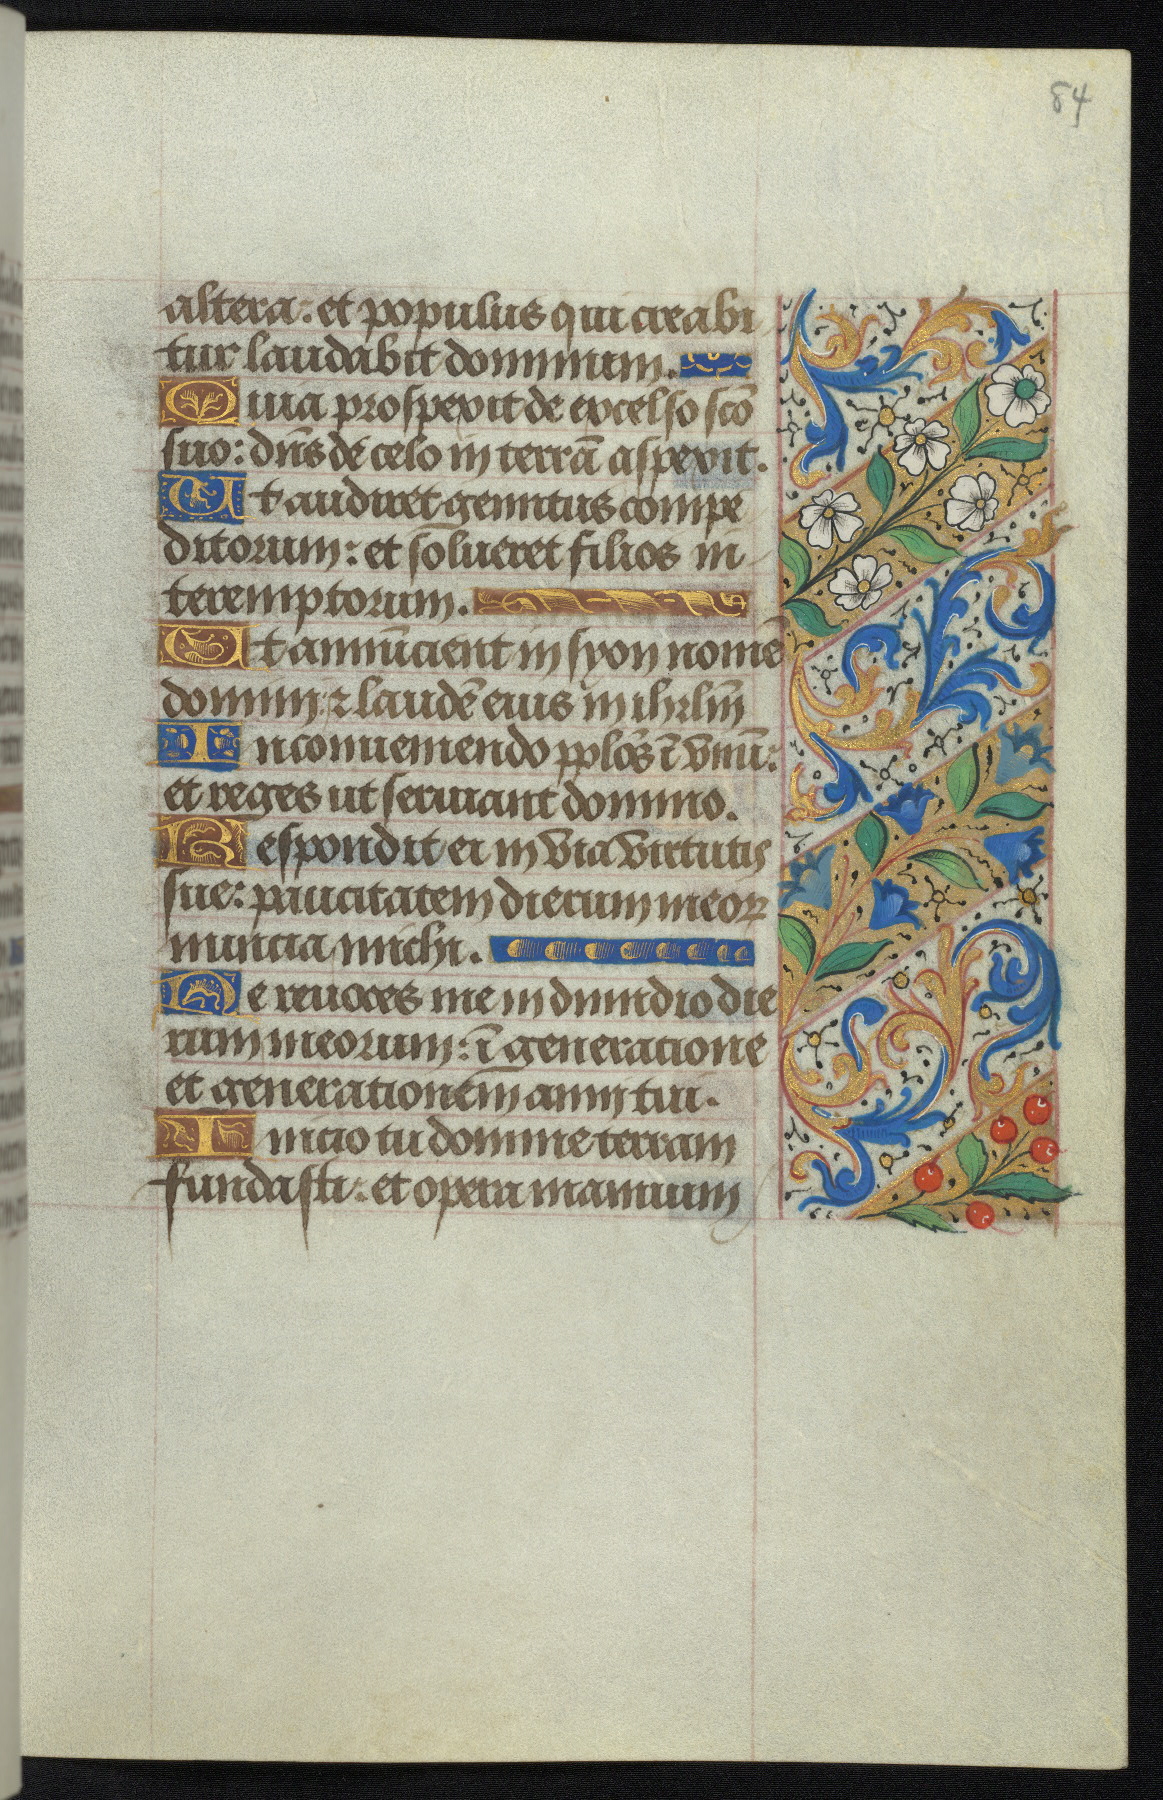 84
altera: et populus qui creabi
tur laudabit dominum.
Quia prospexit de excelso sc̄o
suo: dn̄s de celo in terrā aspexit.
Ut audiret gemitus compe
ditorum: et solueret filios in
teremptorum.
Et annūcient in syon nomē
domini: ⁊ laudē eius in ihrlm̄
In conueniendo pplōs ī vnū:
et reges ut seruiant domino.
Respondit ei in via virtutis
sue: paucitatem dierum meoꝝ
nuncia michi.
Ne reuoces me in dimidio die
rum meorum: ī generatione
et generationem̄ anni tui.
Inicio tu domine terram
fundasti: et opera manuum